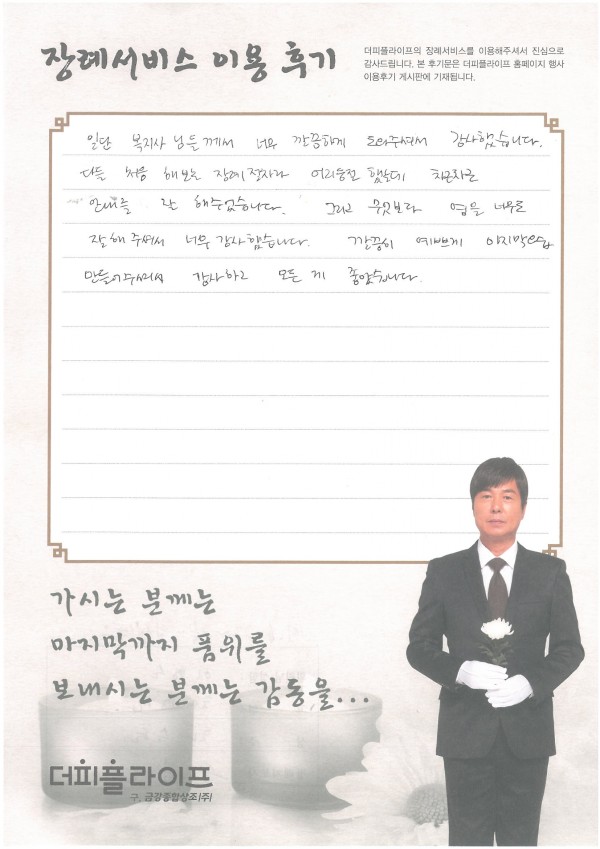 장례서비스 이용 후기
더피플라이프의 장례서비스를 이용해주셔서 진심으로
감사드립니다. 본 후기문은 더피플라이프 홈페이지 행사
이용후기 게시판에 기재됩니다.
일단 복지사 님들께서 너무 깔끔하게 도와주셔서 감사했습니다.
다들 처음 해보는 장례절차라 어리둥절 했는데 차근차근
안내를 잘 해주셨습니다. 그리고 무엇보다 염을 너무도
잘해 주셔서 너무 감사합습니다. 깔끔히 예쁘게 마지막모습
만들어주셔서 감사하고 모든 게 좋았습니다.
가시는 분께는
마지막까지 품위를
보내시는 분께는 감동을...
더피플라이프
구. 금강종합상조(주)